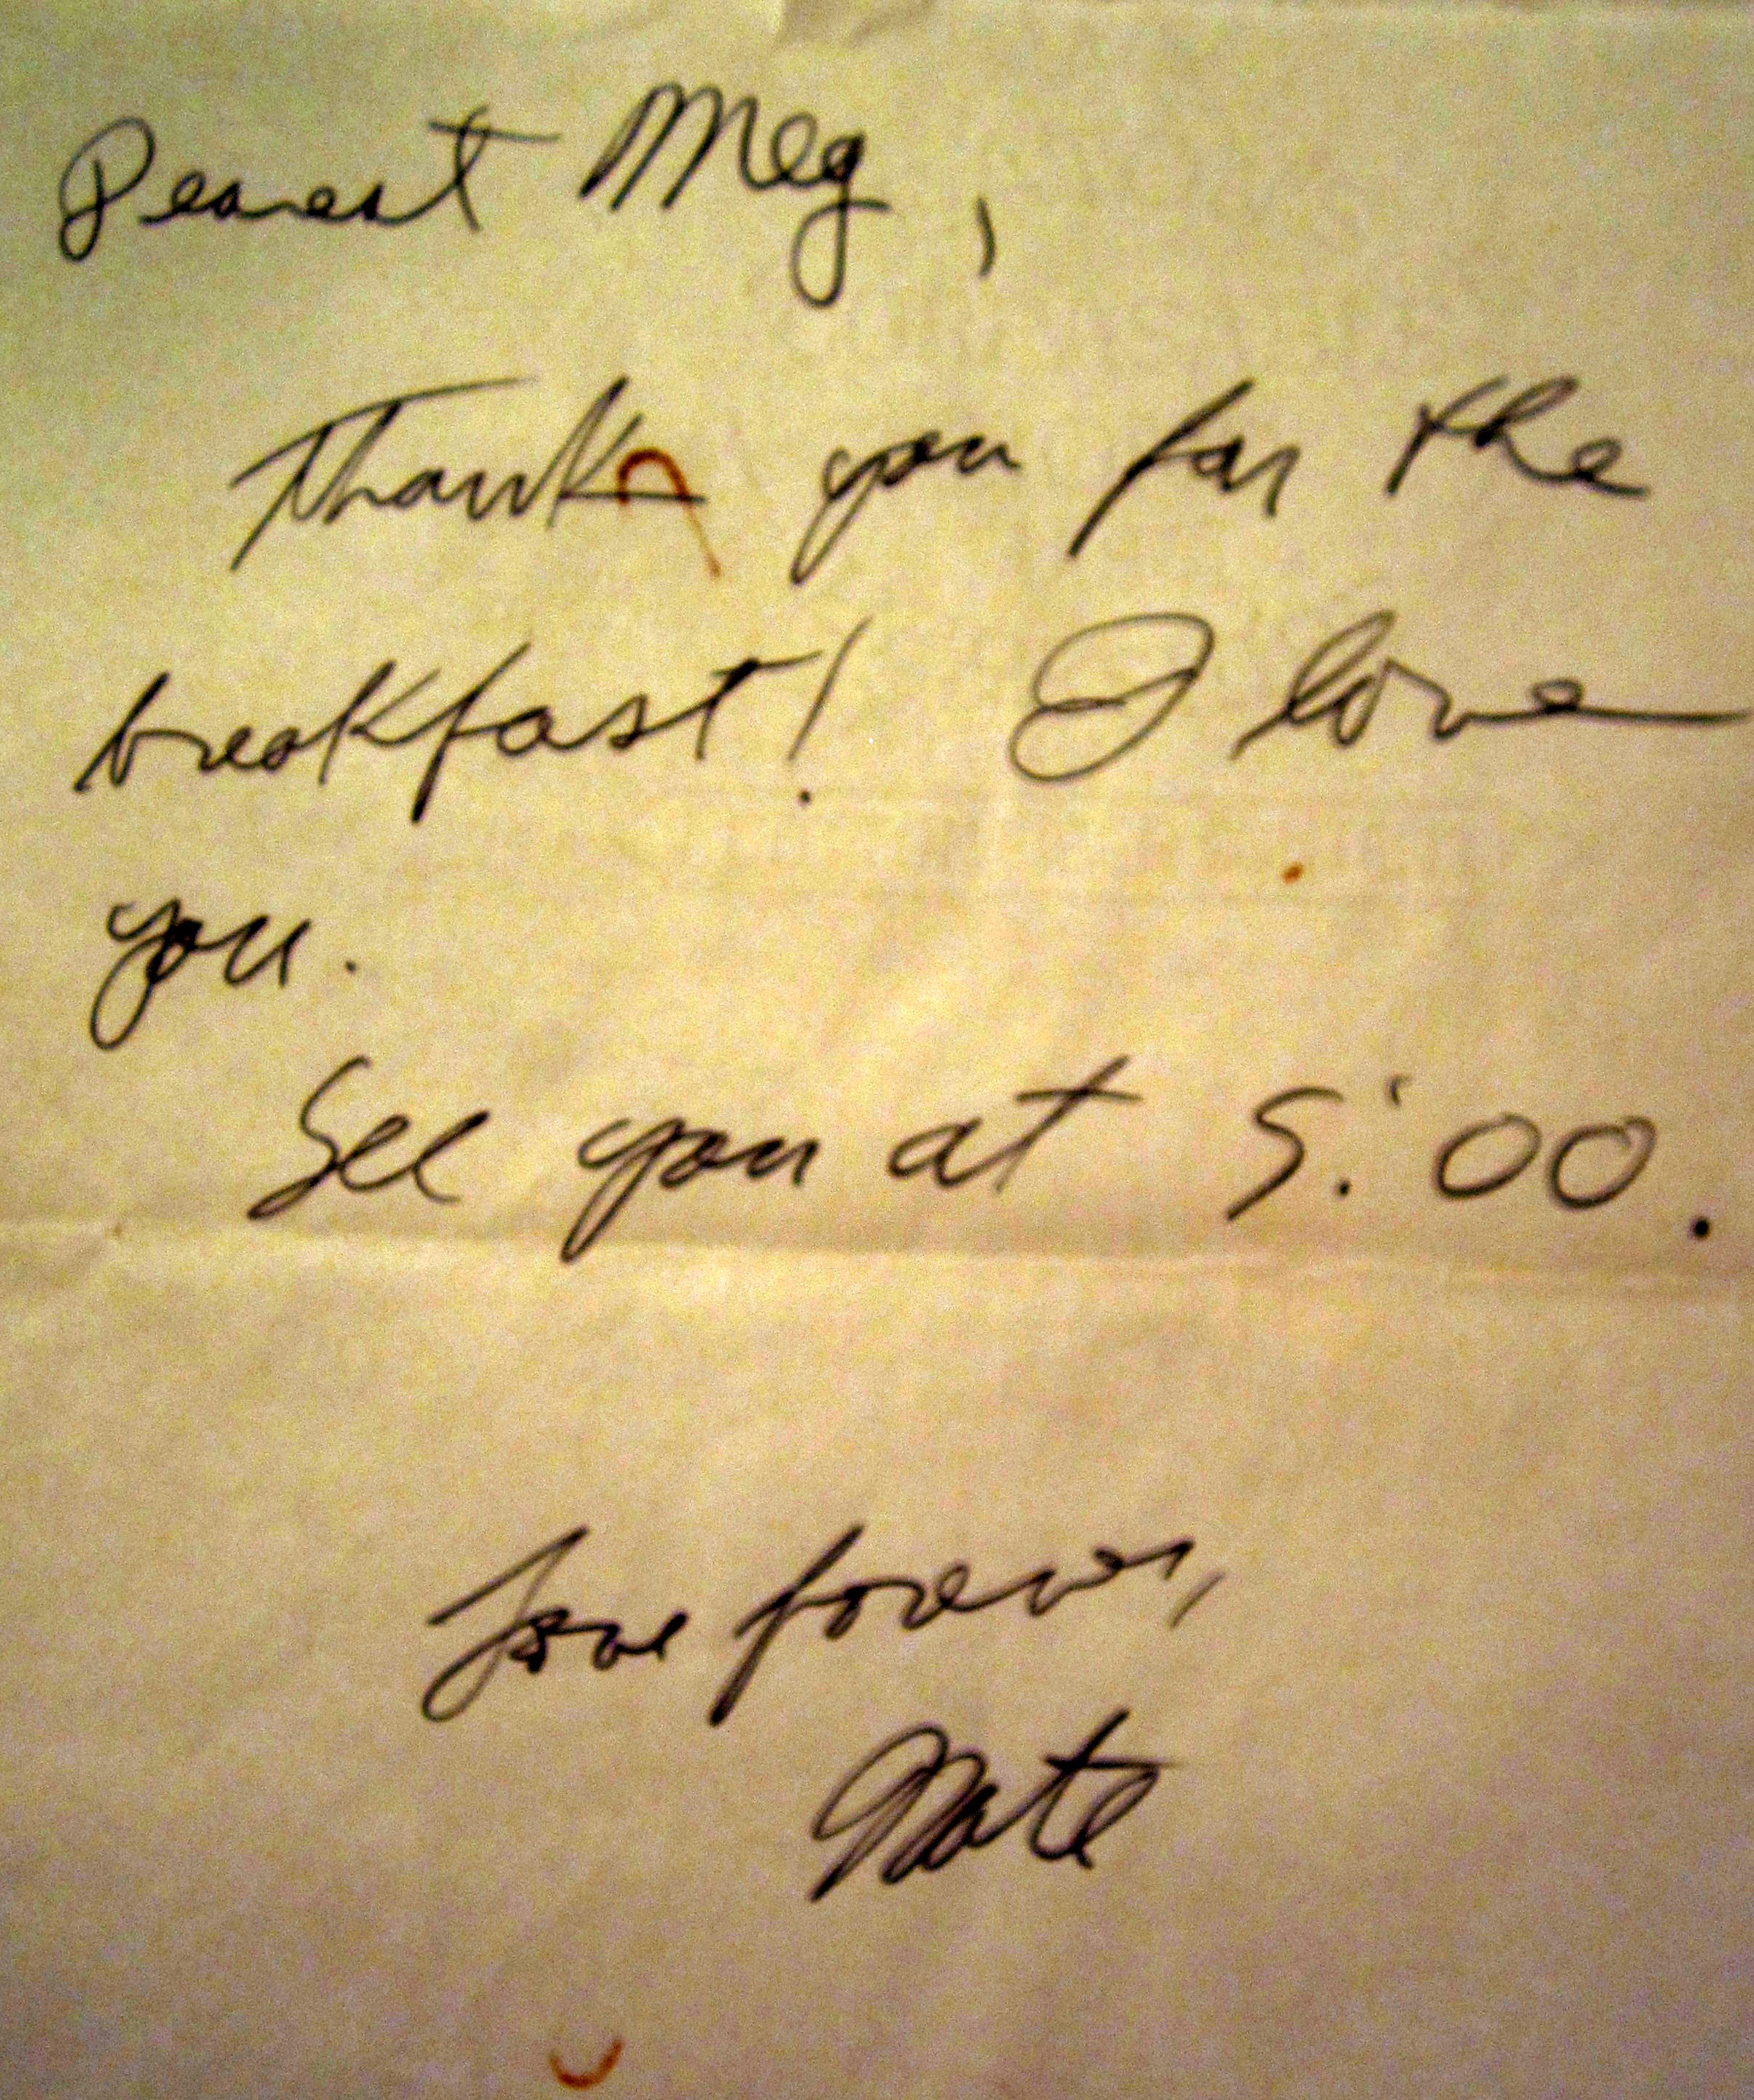 Dearest Meg,
Thank you for the
breakfast! I love
you.
See you at 5:00.
Love forever,
Nate